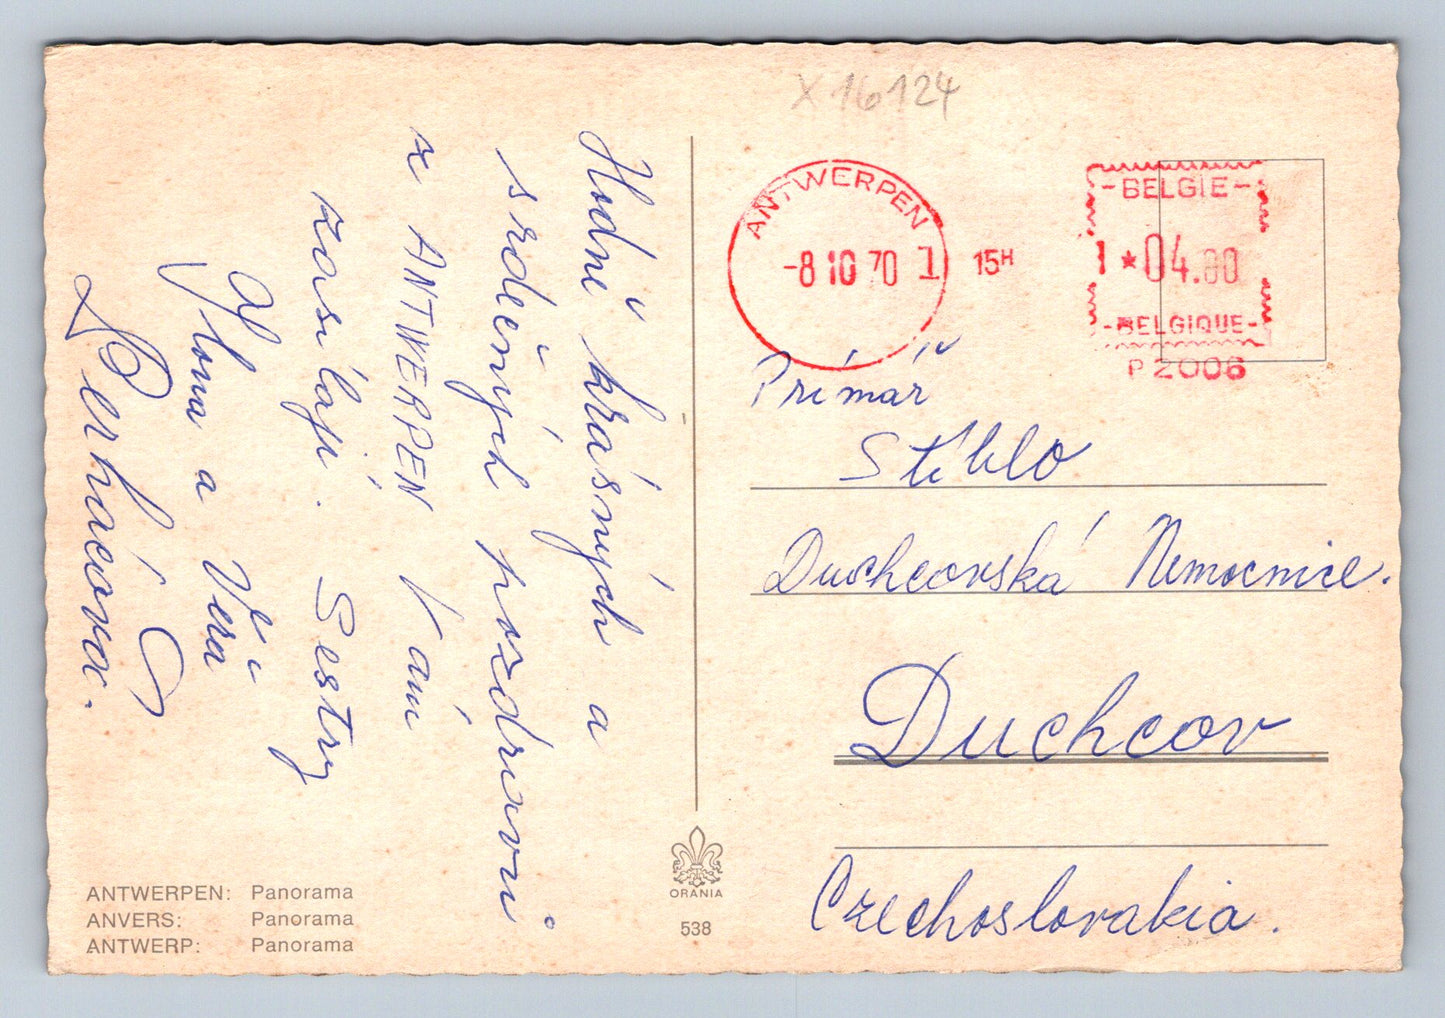 X 16124
ANTWERPEN 1
-8 10 70
15H
-BELGIE-
1 *04.00
-BELGIQUE-
P 2006
Hodně krásných a
srdečných pozdravů
z ANTWERPEN Vám
zasílají. Sestry
a Věra
Perháčova.
Prímář
Stíblo
Duchcovská Nemocnice.
Duchcov
Czechoslovakia.
ORANIA
538
ANTWERPEN: Panorama
ANVERS: Panorama
ANTWERP: Panorama